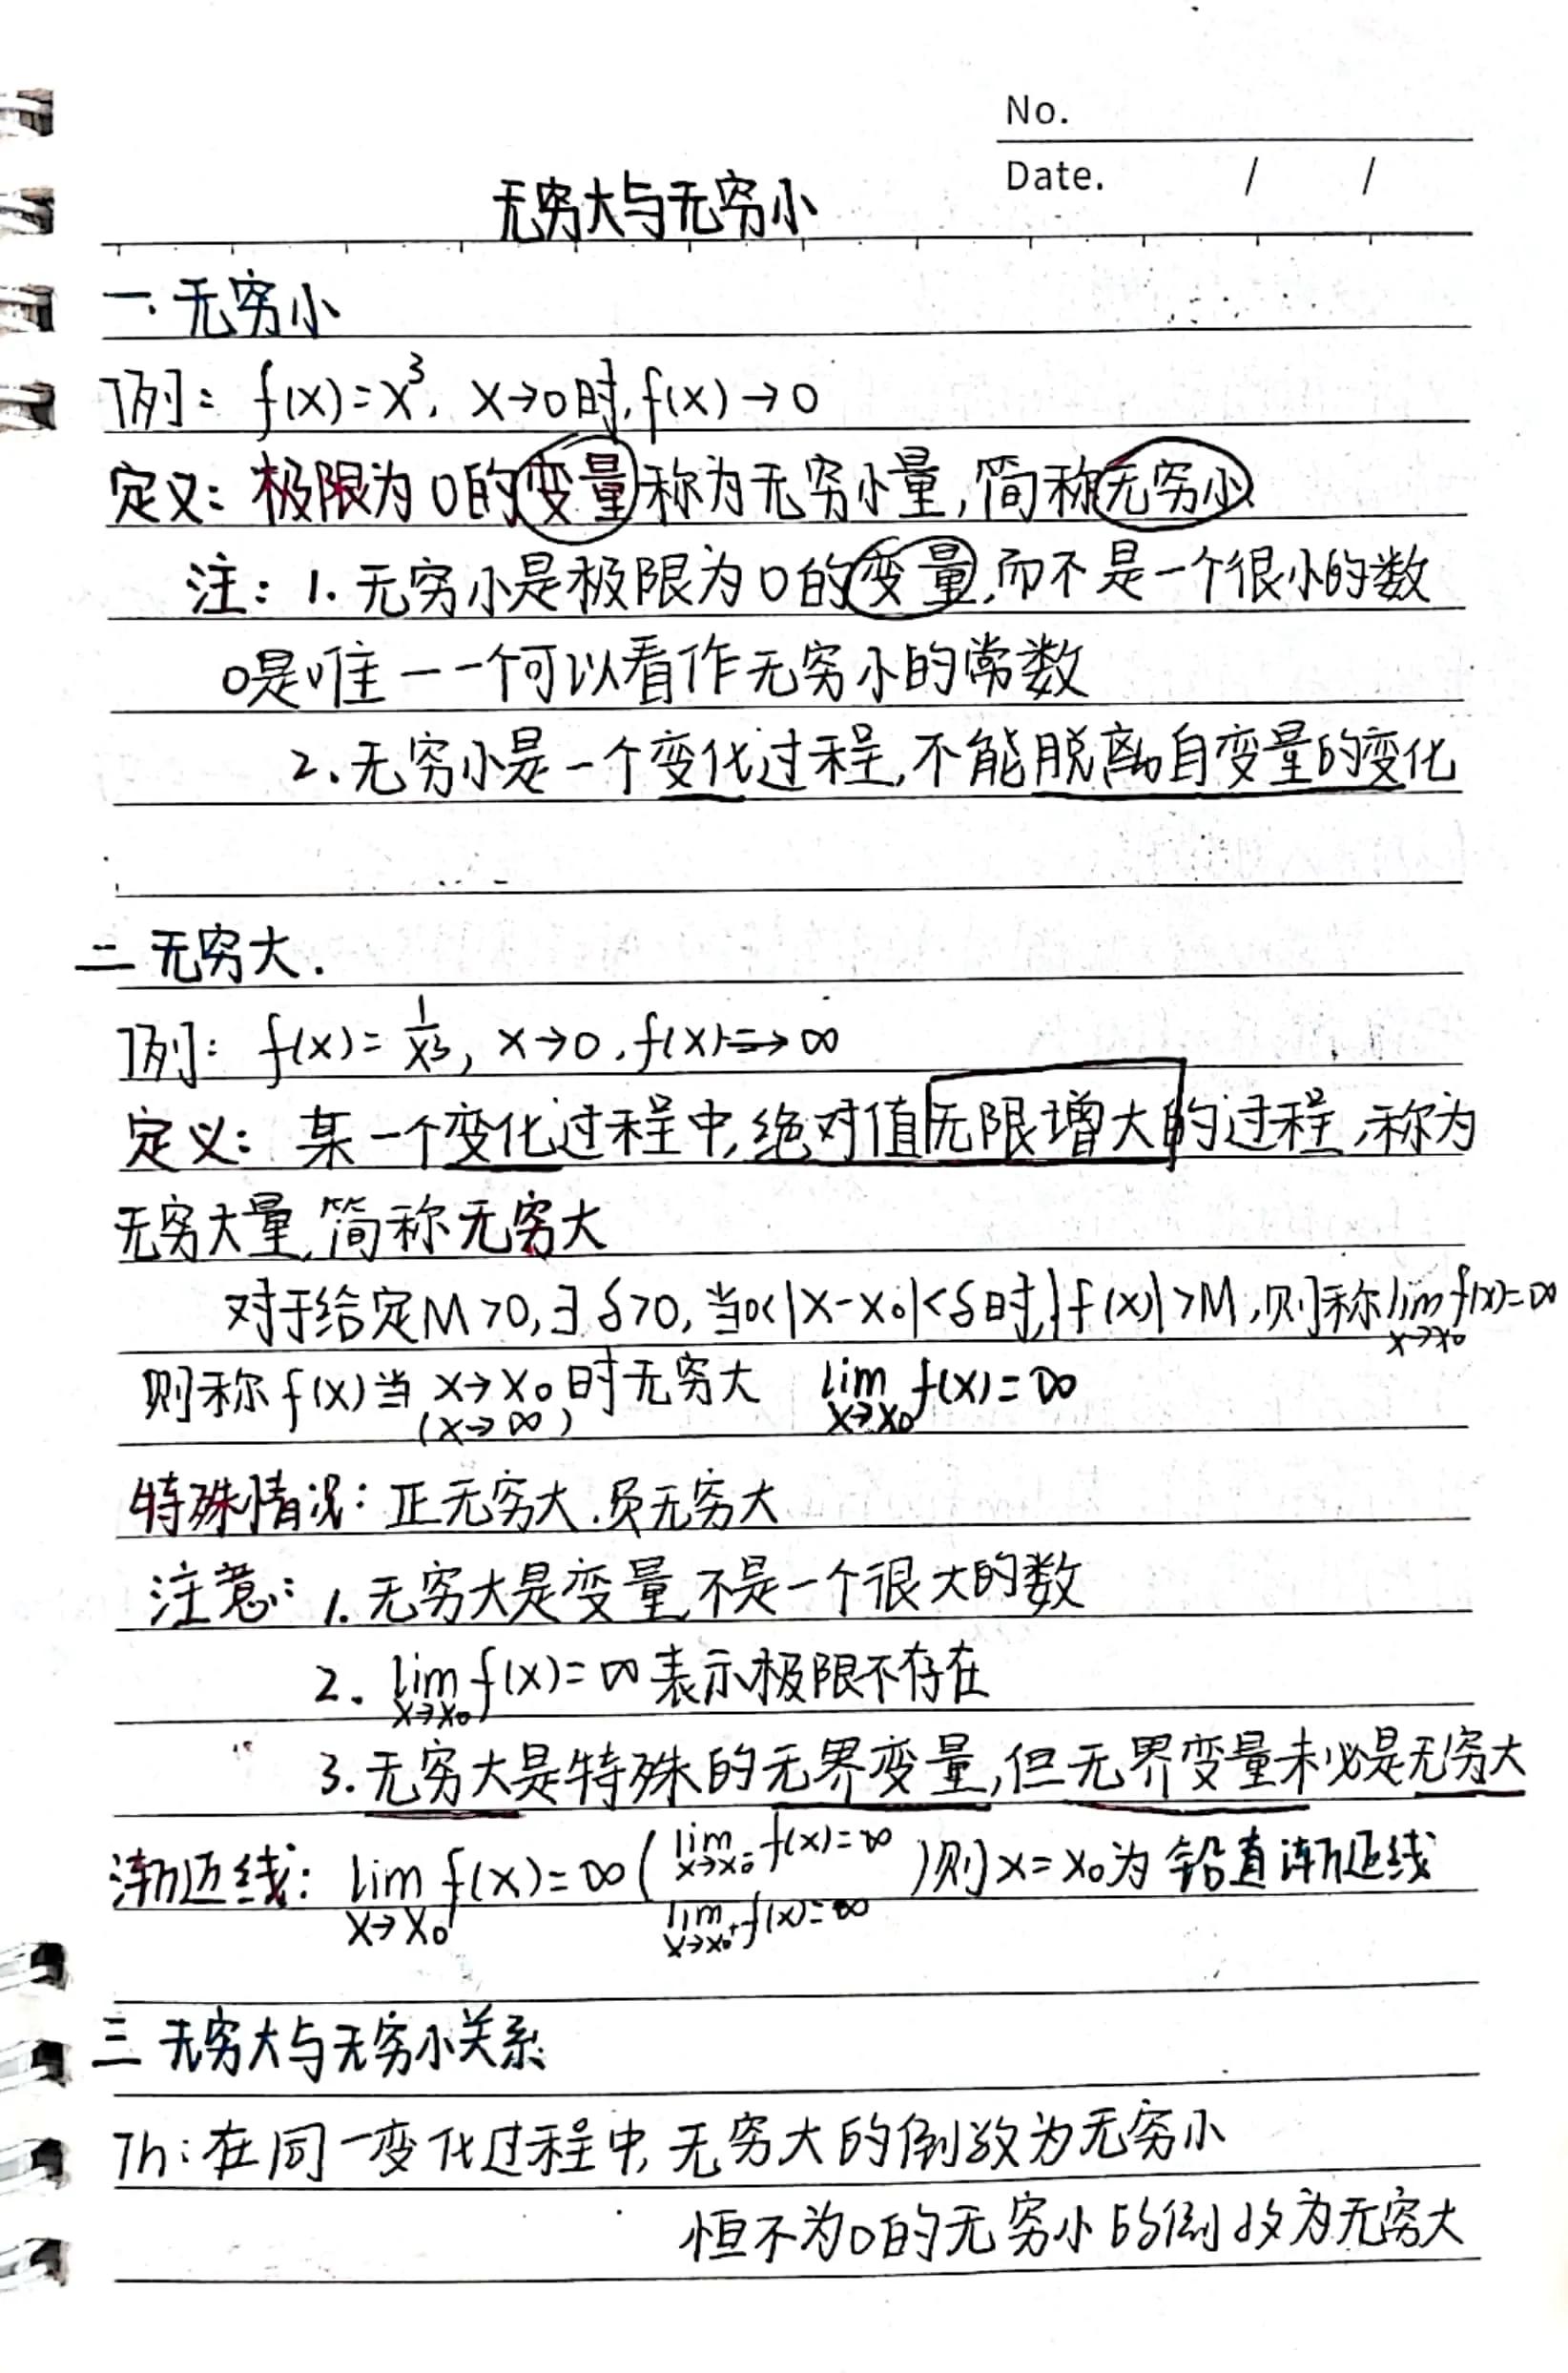 No.
Date. / /
无穷大与无穷小
一. 无穷小
例: f(x)=x³, x→0时, f(x)→0
定义: 极限为0的变量称为无穷小量, 简称无穷小
注: 1. 无穷小是极限为0的变量, 而不是一个很小的数
0是唯一一个可以看作无穷小的常数
2. 无穷小是一个变化过程, 不能脱离自变量的变化
二 无穷大.
例: f(x)=1/x³, x→0, f(x)→∞
定义: 某一个变化过程中, 绝对值无限增大的过程, 称为
无穷大量, 简称无穷大
对于给定M>0, ∃δ>0, 当0<|x-x₀|<δ时, |f(x)|>M, 则称lim x→x₀ f(x)=∞
则称f(x)当x→x₀时无穷大 lim x→x₀ f(x)=∞
(x→∞)
特殊情况: 正无穷大. 负无穷大
注意: 1. 无穷大是变量, 不是一个很大的数
2. lim x→x₀ f(x)=∞表示极限不存在
3. 无穷大是特殊的无界变量, 但无界变量未必是无穷大
渐近线: lim x→x₀ f(x)=∞ (lim x→x₀⁻ f(x)=∞ lim x→x₀⁺ f(x)=∞) 则x=x₀为铅直渐近线
三 无穷大与无穷小关系
Th: 在同一变化过程中, 无穷大的倒数为无穷小
恒不为0的无穷小的倒数为无穷大